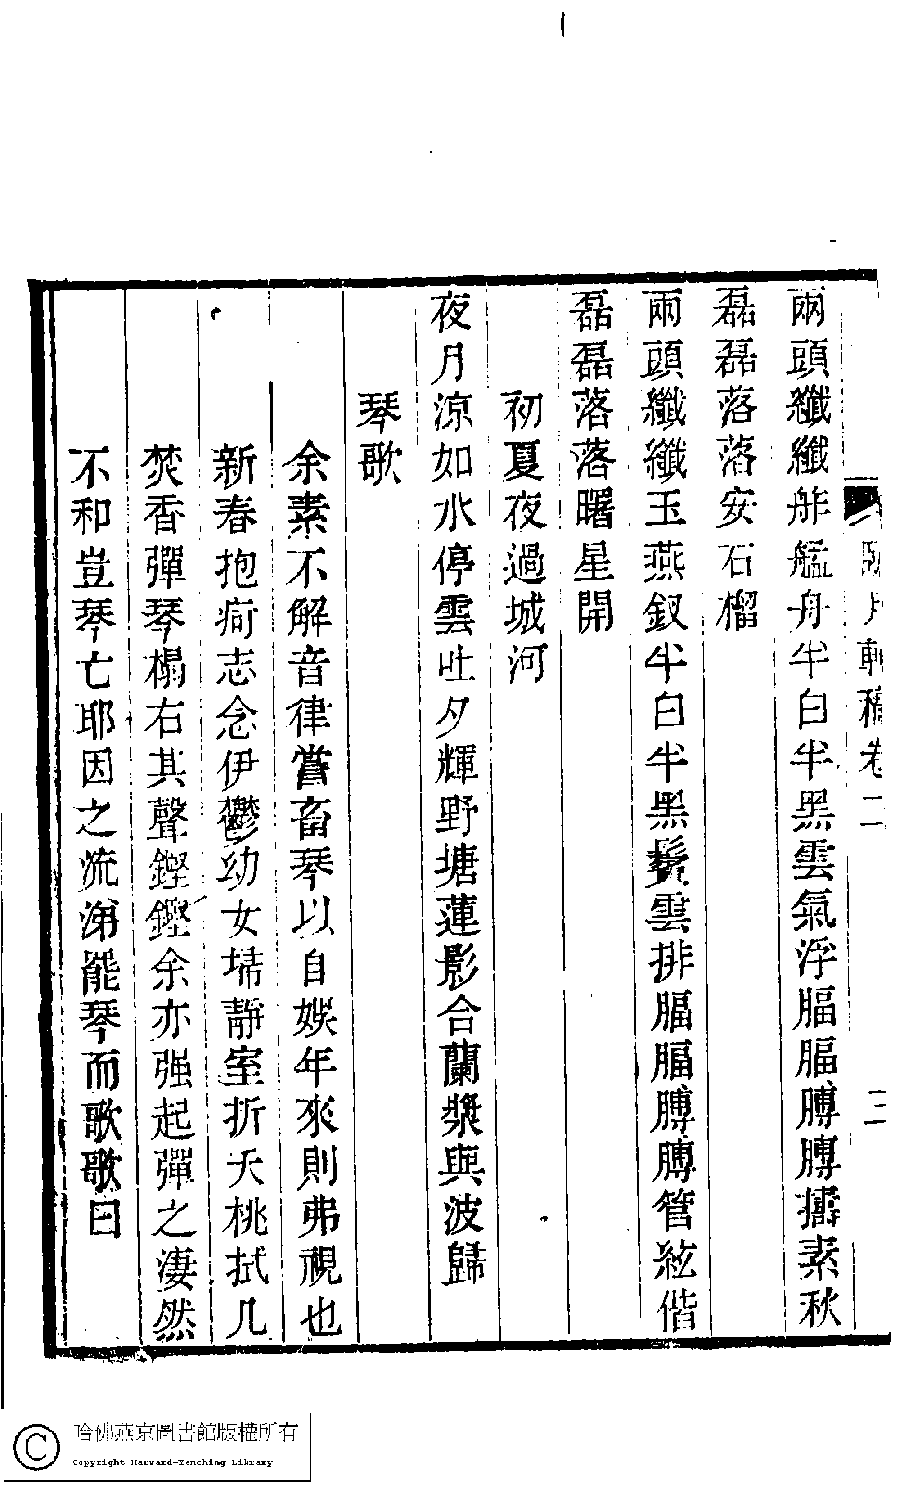 臥月軒稿卷二 三
兩頭纖纖舴艋舟半白半黑雲氣浮腷腷膊膊擣素秋
磊磊落落安石榴
兩頭纖纖玉燕釵半白半黑鬢雲排腷腷膊膊管絃偕
磊磊落落曙星開
初夏夜過城河
夜月涼如水停雲吐夕輝野塘蓮影合蘭槳與波歸
琴歌
余素不解音律嘗畜琴以自娛年來則弗視也
新春抱疴志念伊鬱幼女埽靜室折夭桃拭几
焚香彈琴榻右其聲鏗鏗余亦强起彈之淒然
不和豈琴亡耶因之流涕能琴而歌歌曰
哈佛燕京圖書館版權所有
Copyright Harvard-Yenching Library